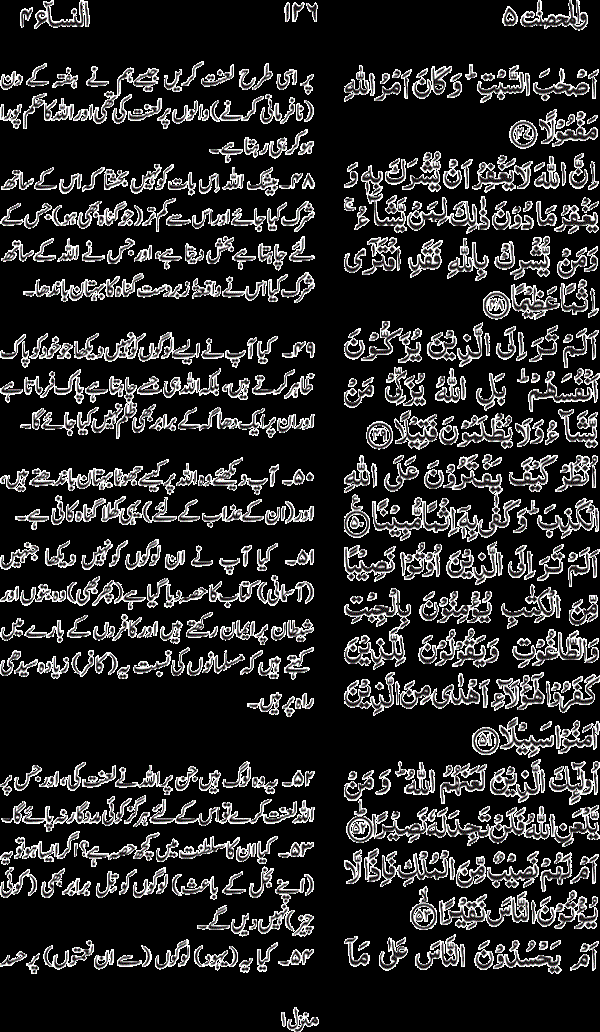 والمحصنٰت ۵
۱۲۶
النسآء ۴
اَصْحٰبَ السَّبْتِ ؕ وَ كَانَ اَمْرُ اللّٰهِ
مَفْعُوْلًا ﴿۴۷﴾
اِنَّ اللّٰهَ لَا يَغْفِرُ اَنْ يُّشْرَكَ بِهٖ وَ
يَغْفِرُ مَا دُوْنَ ذٰلِكَ لِمَنْ يَّشَآءُ ۚ
وَ مَنْ يُّشْرِكْ بِاللّٰهِ فَقَدِ افْتَرٰۤى
اِثْمًا عَظِيْمًا ﴿۴۸﴾
اَلَمْ تَرَ اِلَى الَّذِيْنَ يُزَكُّوْنَ
اَنْفُسَهُمْ ؕ بَلِ اللّٰهُ يُزَكِّيْ مَنْ
يَّشَآءُ وَ لَا يُظْلَمُوْنَ فَتِيْلًا ﴿۴۹﴾
اُنْظُرْ كَيْفَ يَفْتَرُوْنَ عَلَى اللّٰهِ
الْكَذِبَ ؕ وَ كَفٰى بِهٖۤ اِثْمًا مُّبِيْنًا ﴿۵۰﴾
اَلَمْ تَرَ اِلَى الَّذِيْنَ اُوْتُوْا نَصِيْبًا
مِّنَ الْكِتٰبِ يُؤْمِنُوْنَ بِالْجِبْتِ
وَ الطَّاغُوْتِ وَ يَقُوْلُوْنَ لِلَّذِيْنَ
كَفَرُوْا هٰۤؤُلَآءِ اَهْدٰى مِنَ الَّذِيْنَ
اٰمَنُوْا سَبِيْلًا ﴿۵۱﴾
اُولٰٓئِكَ الَّذِيْنَ لَعَنَهُمُ اللّٰهُ ؕ وَ مَنْ
يَّلْعَنِ اللّٰهُ فَلَنْ تَجِدَ لَهٗ نَصِيْرًا ﴿۵۲﴾
اَمْ لَهُمْ نَصِيْبٌ مِّنَ الْمُلْكِ فَاِذًا لَّا
يُؤْتُوْنَ النَّاسَ نَقِيْرًا ﴿۵۳﴾
اَمْ يَحْسُدُوْنَ النَّاسَ عَلٰى مَاۤ
پر اسی طرح لعنت کریں جیسے ہم نے ہفتہ کے دن
(نافرمانی کرنے) والوں پر لعنت کی تھی اور اللہ کا حکم پورا
ہو کر ہی رہتا ہے۔
۴۸۔ بیشک اللہ اِس بات کو نہیں بخشتا کہ اس کے ساتھ
شرک کیا جائے اور اس سے کم تر (جو گناہ بھی ہو) جس کے
لئے چاہتا ہے بخش دیتا ہے، اور جس نے اللہ کے ساتھ
شرک کیا اس نے واقعۃً زبردست گناہ کا بہتان باندھا۔
۴۹۔ کیا آپ نے ایسے لوگوں کو نہیں دیکھا جو خود کو پاک
ظاہر کرتے ہیں، بلکہ اللہ ہی جسے چاہتا ہے پاک فرماتا ہے
اور ان پر ایک دھاگہ کے برابر بھی ظلم نہیں کیا جائے گا۔
۵۰۔ آپ دیکھئے وہ اللہ پر کیسے جھوٹا بہتان باندھتے ہیں،
اور (ان کے عذاب کے لئے) یہی کھلا گناہ کافی ہے۔
۵۱۔ کیا آپ نے ان لوگوں کو نہیں دیکھا جنہیں
(آسمانی) کتاب کا حصہ دیا گیا ہے (پھر بھی) وہ بتوں اور
شیطان پر ایمان رکھتے ہیں اور کافروں کے بارے میں
کہتے ہیں کہ مسلمانوں کی نسبت یہ (کافر) زیادہ سیدھی
راہ پر ہیں۔
۵۲۔ یہ وہ لوگ ہیں جن پر اللہ نے لعنت کی، اور جس پر
اللہ لعنت کرے تو اس کے لئے ہرگز کوئی مددگار نہ پائے گا۔
۵۳۔ کیا ان کا سلطنت میں کچھ حصہ ہے؟ اگر ایسا ہو تو یہ
(اپنے بخل کے باعث) لوگوں کو تِل برابر بھی (کوئی
چیز) نہیں دیں گے۔
۵۴۔ کیا یہ (یہود) لوگوں (سے ان نعمتوں) پر حسد
منزل ۱